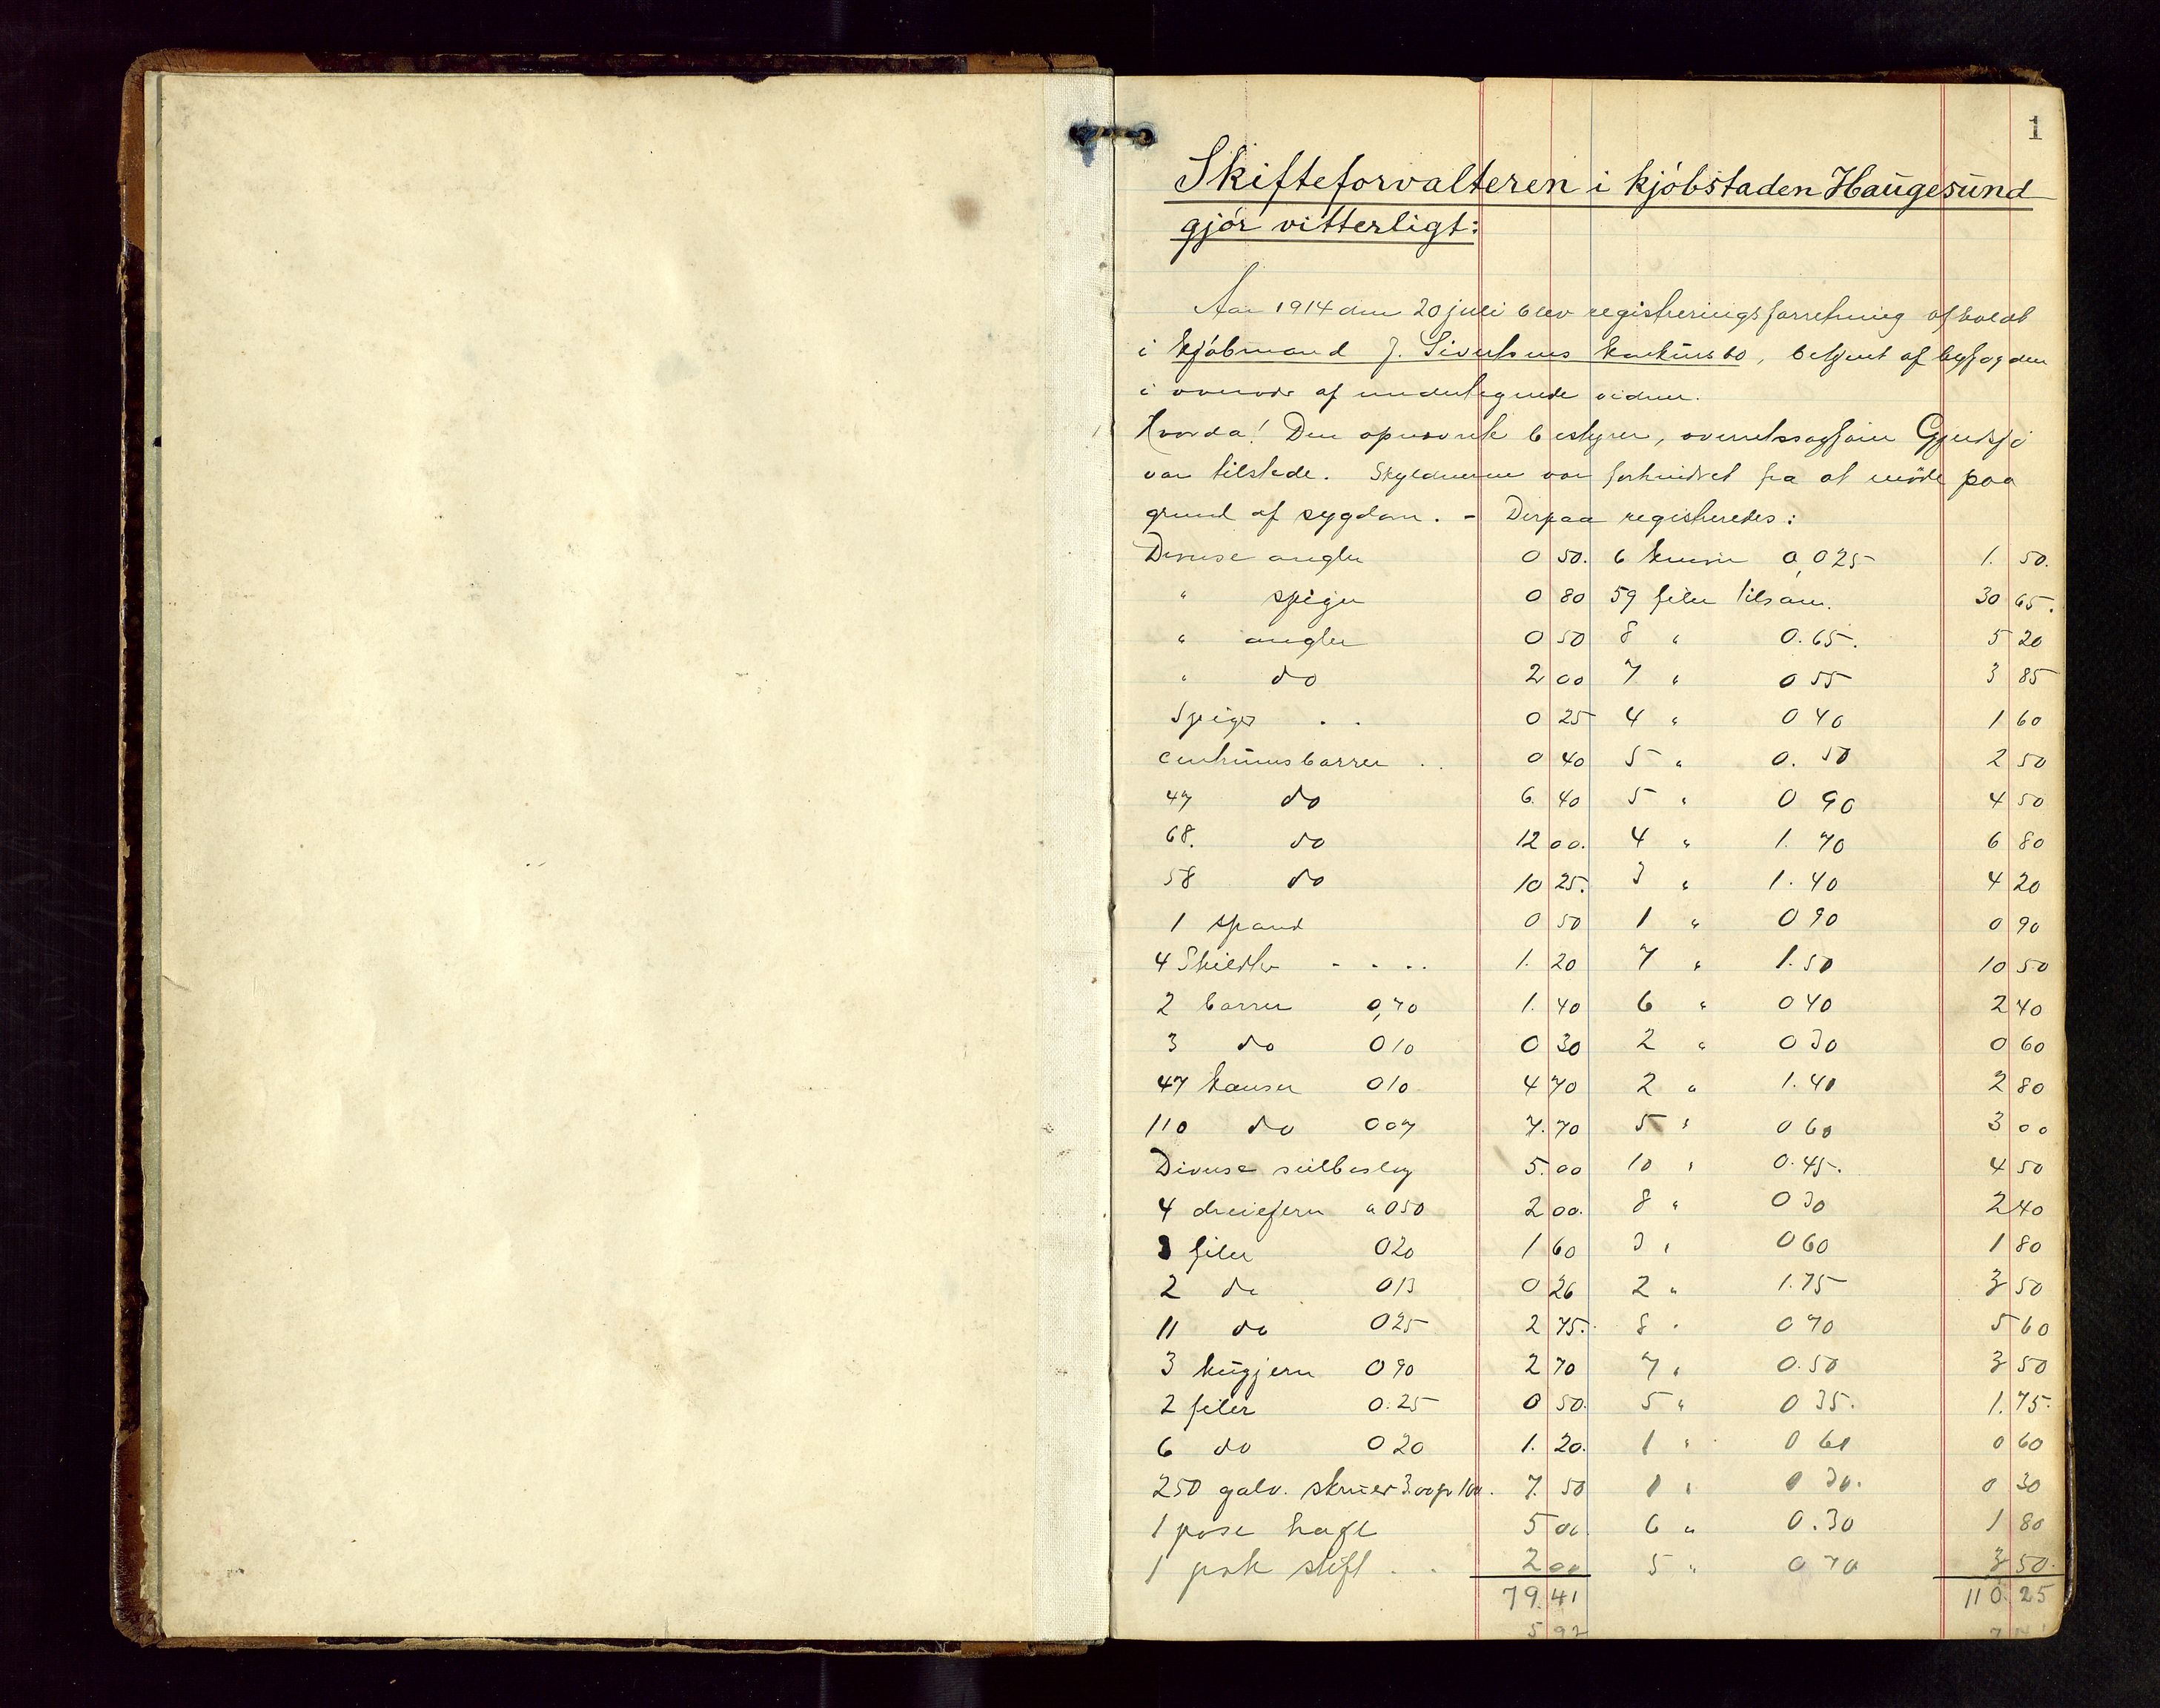 1
Skifteforvalteren i kjöbstaden Haugesund
gjör vitterligt:
Aar 1914 den 20 juli blev registreringsforretning afholdt
i kjöbmand J. Sivertsens konkursbo, betjent af byfogden
i overvær af undertegnede vidner.
Hvorda! Den opnævnte bestyrer, overretssagförer
var tilstede. Skyldneren var forhindret fra at möde paa
grund af sygdom. - Derpaa registreredes:
Diverse angler 0 50. 6 0,025 1. 50.
" spiger 0 80 59 filer tilsam. 30 65.
" angler 0 50 8 " 0.65. 5 20
" do 2 00 7 " 0 55 3 85
Spiger . . 0 25 4 " 0 40 1 60
centrumsborrer . . 0 40 5 " 0. 50 2 50
47 do 6. 40 5 " 0 90 4 50
68. do 12 00. 4 " 1. 70 6 80
58 do 10 25. 3 " 1. 40 4 20
1 spand 0 50 1 " 0 90 0 90
4 Skilter - - . . 1. 20 7 " 1.50 10 50
2 borrer 0,70 1. 40 6 " 0 40 2 40
3 do 0 10 0 30 2 " 0 30 0 60
47 kauser 0 10 4 70 2 " 1.40 2 80
110 do 0 07 7.70 5 " 0 60 3 00
Diverse seilbeslag 5.00 10 " 0.45. 4 50
4 dreiejern a 0 50 2 00. 8 " 0 30 2 40
8 filer 0 20 1 60 3 " 0 60 1 80
2 do 0 13 0 26 2 " 1.75 3 50
11 do 0 25 2 75. 8 " 0 70 5 60
3 hugjern 0 90 2 70 7 " 0.50 3 50
2 filer 0.25 0 50. 5 " 0 35. 1.75.
6 do 0 20 1. 20. 1 " 0 60 0 60
250 galv. skruer 3.00 pr 100. 7. 50 1 " 0 30. 0 30
1 pose hagl 5 00. 6 " 0.30 1 80
1 pak stift . . 2 00 5 " 0 70 3 50.
79.41 110.25
5 92